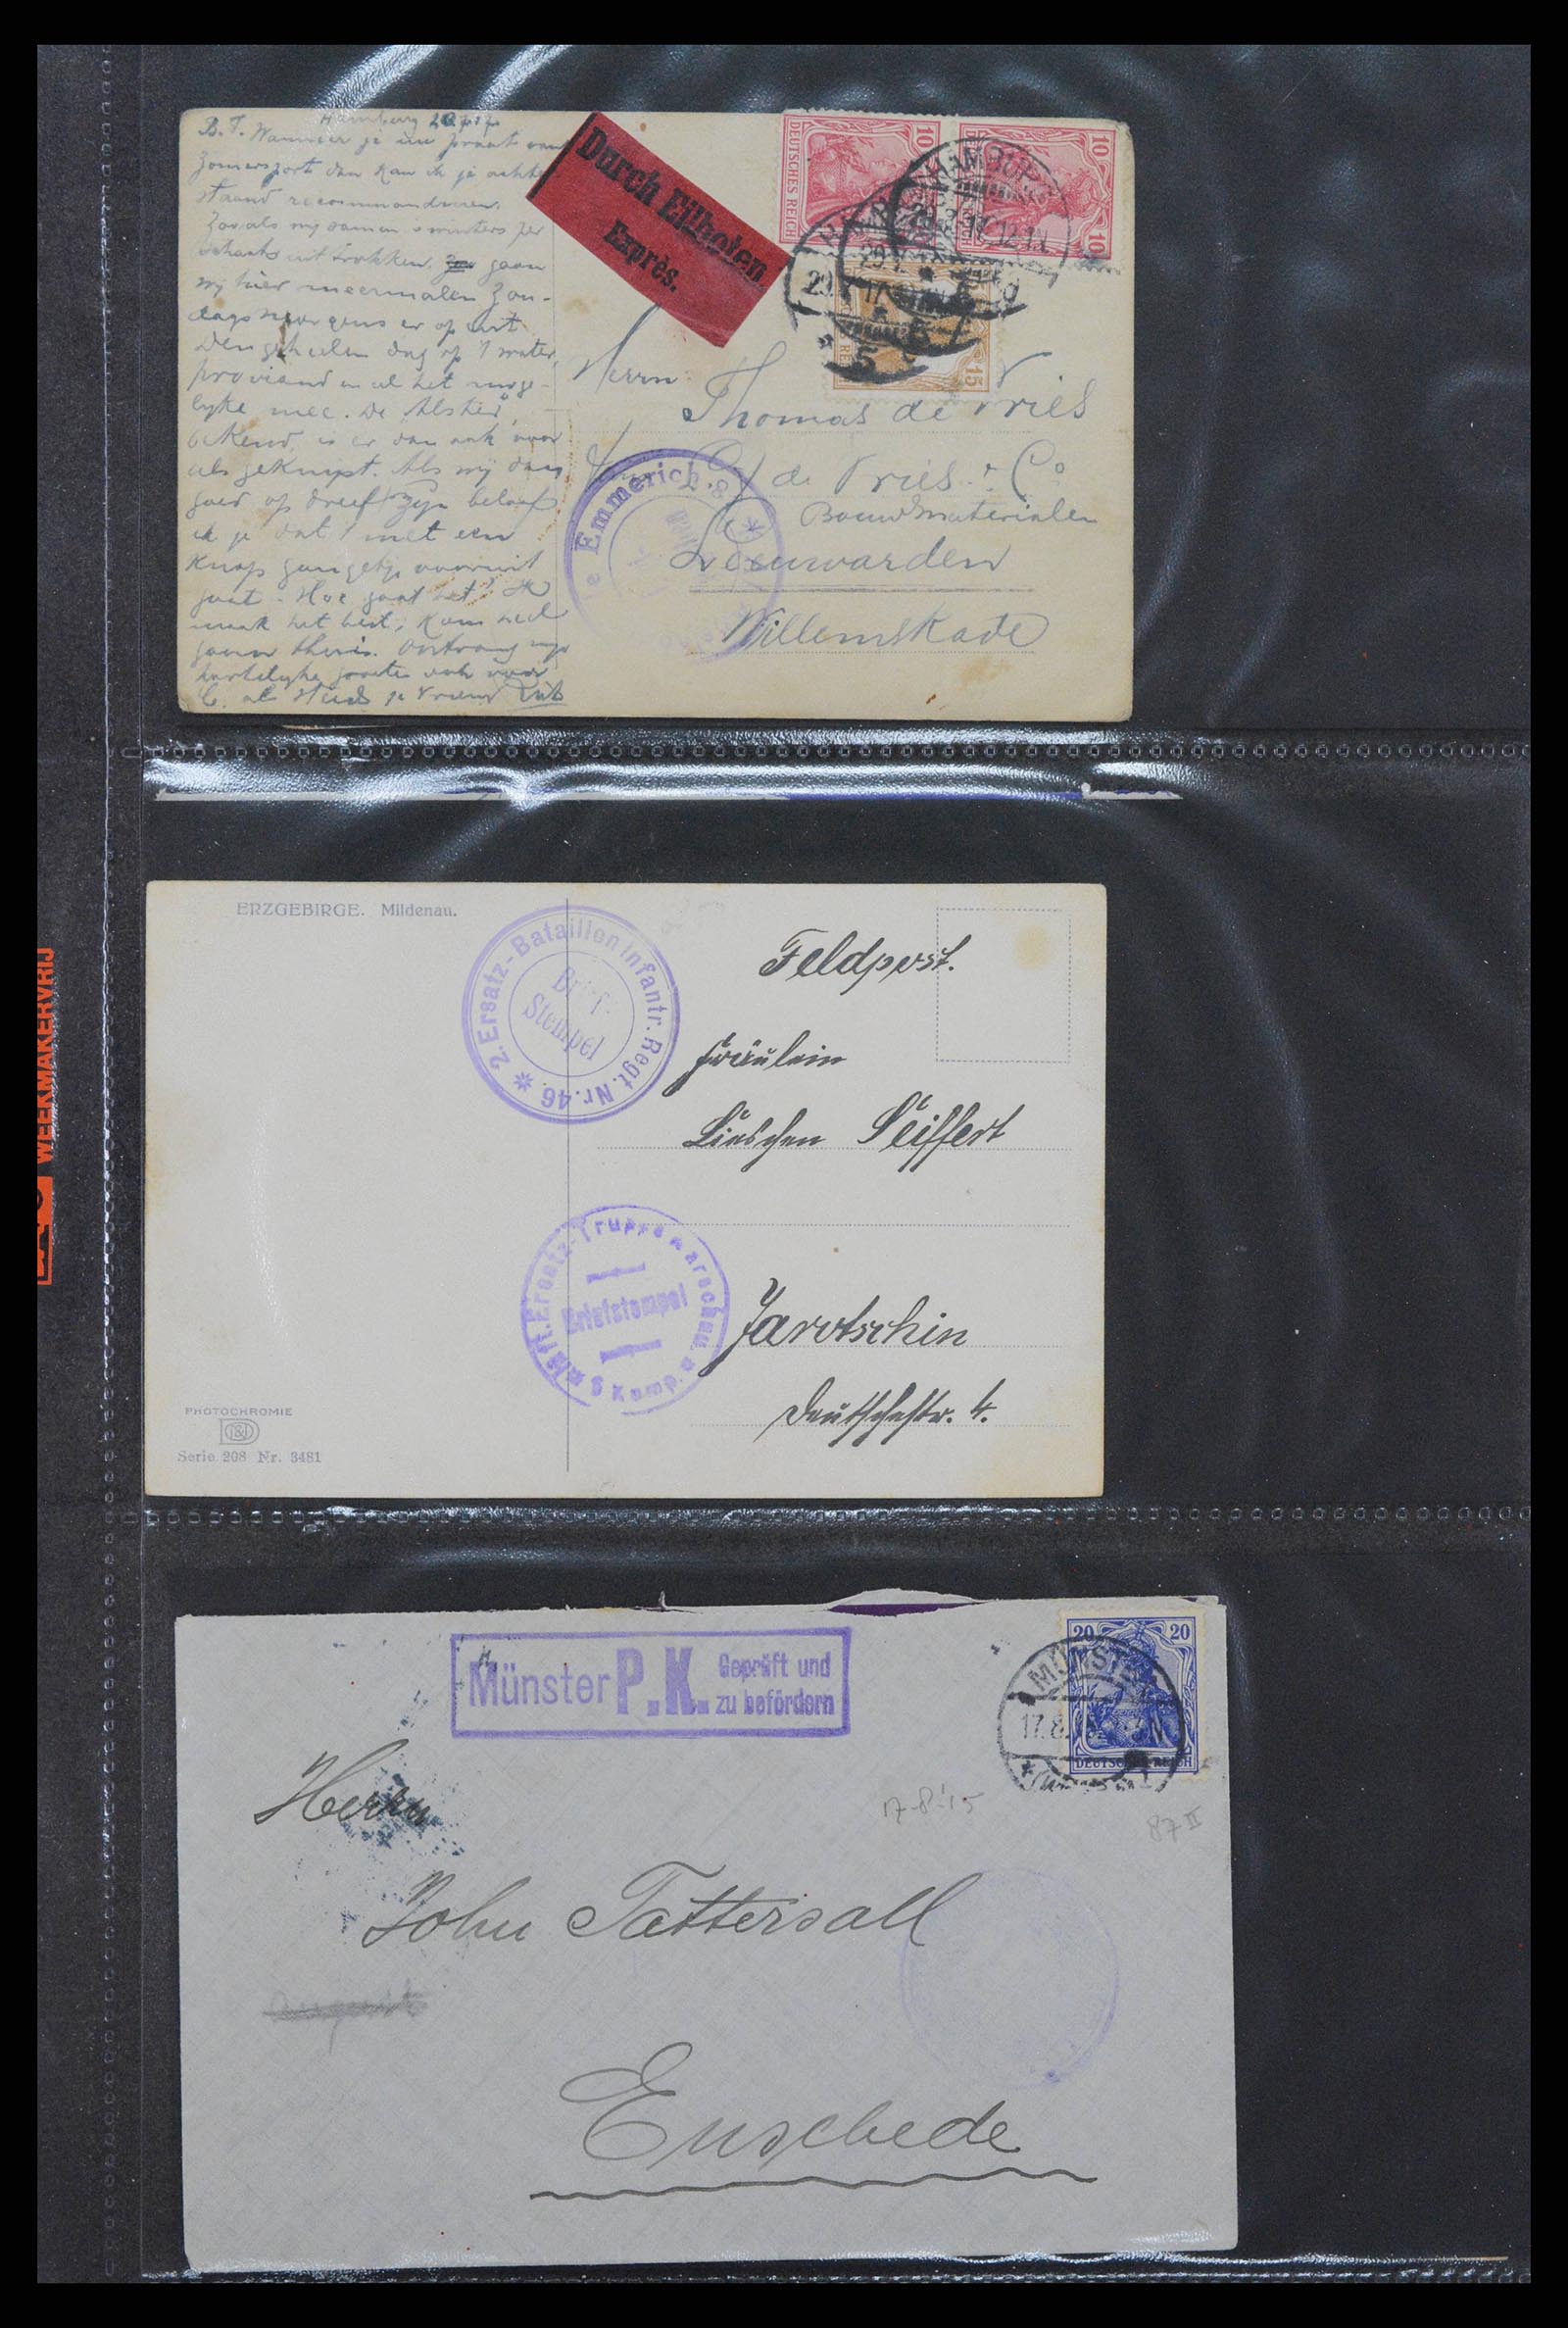 Hamburg
B. T. Wanneer je me praat van
zomersport dan kan ik je achter
staand recommanderen.
Zooals wij samen 's winters per
schaats uittrokken, gaan
wij hier meermalen Zon-
dagsmorgens er op uit
den geheelen dag op 't water,
proviand en al het moge-
lyke mee. De Alster,
bekend, is er dan ook voor
als geknipt. Als wij dan
goed op dreef zyn beloof
ik je dat 't met een
knap gangetje vooruit
gaat. Hoe gaat het? Ik
maak het best, kom heel
gauw thuis. Ontvang myn
hartelyke groeten ook voor
je vriend
Durch Eilboten
Exprès.
10 10
DEUTSCHES REICH
10
15
HAMBURG
5
Herrn
Thomas de Vries
de Vries & Co
Bouwmaterialen
Leeuwarden
Willemskade
Emmerich.8
ERZGEBIRGE. Mildenau.
2. Ersatz-Bataillon Infantr. Regt. Nr. 46.
Brief-
Stempel
Feldpost.
Fräulein
Lieschen Seiffert
Ersatz-Truppe Warschau
Briefstempel
Komp.
Jarotschin
Deutschestr. 4.
PHOTOCHROMIE
Serie 208 Nr. 3481
WEEKMAKERVRIJ
Münster P.K. Geprüft und
zu befördern
20 20
DEUTSCHES REICH
MÜNSTER
17.8.
17-8-'15
87 II
Herrn
John Tattersall
Enschede